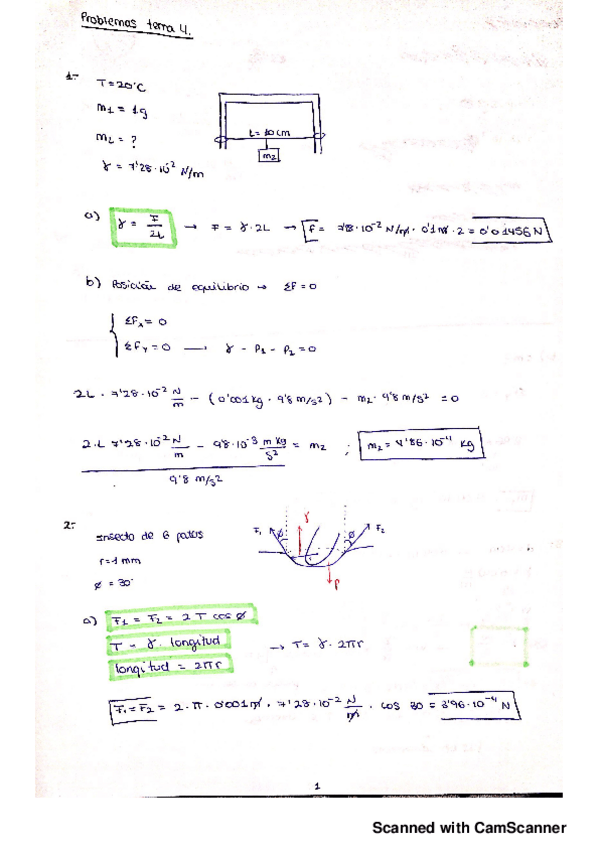 Problemas tema 4.
1.-
T=20°C
m1 = 1g
L= 10cm
m2 = ?
m2
γ = 7'28·10^-2 N/m
a) γ = F/2L → F = γ·2L → F = 7'28·10^-2 N/m · 0'1m · 2 = 0'01456 N
b) Posición de equilibrio → ΣF = 0
ΣFx = 0
ΣFy = 0 → γ - P1 - P2 = 0
2L · 7'28·10^-2 N/m - (0'001 kg · 9'8 m/s²) - m2 · 9'8 m/s² = 0
2·L 7'28·10^-2 N/m - 9'8·10^-3 m kg/s² = m2 ; m2 = 4'86·10^-4 kg
9'8 m/s²
2.-
Insecto de 6 patas
F1 ø γ ø F2
r=1 mm
P
ø = 30°
a) F1 = F2 = 2 T cos ø
T = γ · longitud → T = γ · 2πr
longitud = 2πr
F1 = F2 = 2·π·0'001m · 7'28·10^-2 N/m · cos 30 = 3'96·10^-4 N
1
Scanned with CamScanner